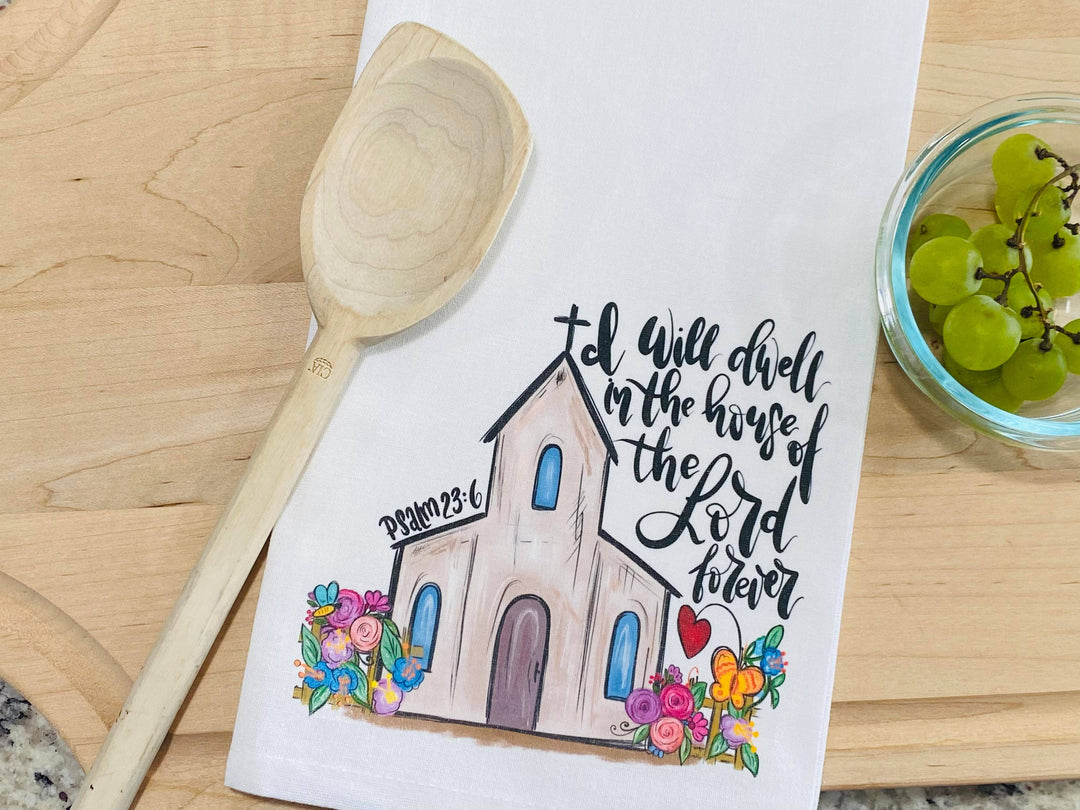 I Will dwell
in the house of
the Lord
forever
Psalm 23:6
CIA